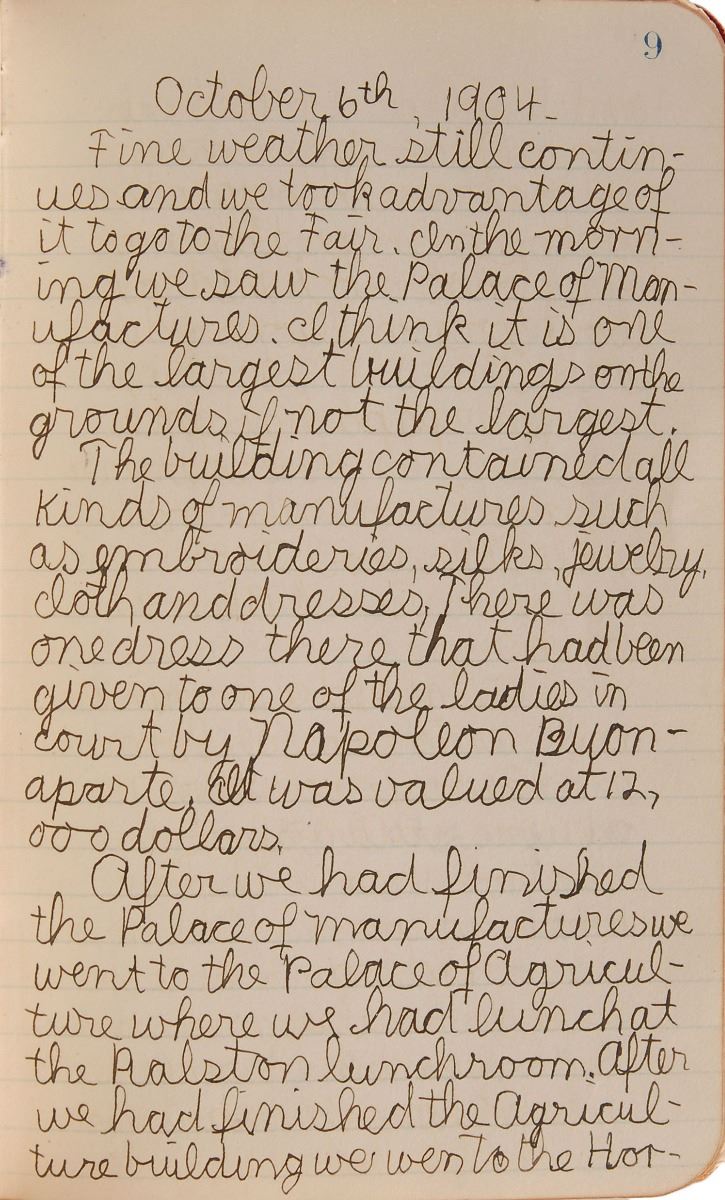 9
October 6th, 1904.
Fine weather still contin-
ues and we took advantage of
it to go to the Fair. In the morn-
ing we saw the Palace of Man-
ufactures. I think it is one
of the largest buildings on the
grounds if not the largest.
The building contained all
kinds of manufactures such
as embroideries, silks, jewelry,
cloth and dresses. There was
one dress there that had been
given to one of the ladies in
court by Napoleon Buon-
aparte. It was valued at 12,
000 dollars.
After we had finished
the Palace of Manufactures we
went to the Palace of Agricul-
ture where we had lunch at
the Ralston lunchroom. After
we had finished the Agricul-
ture building we went to the Hor-